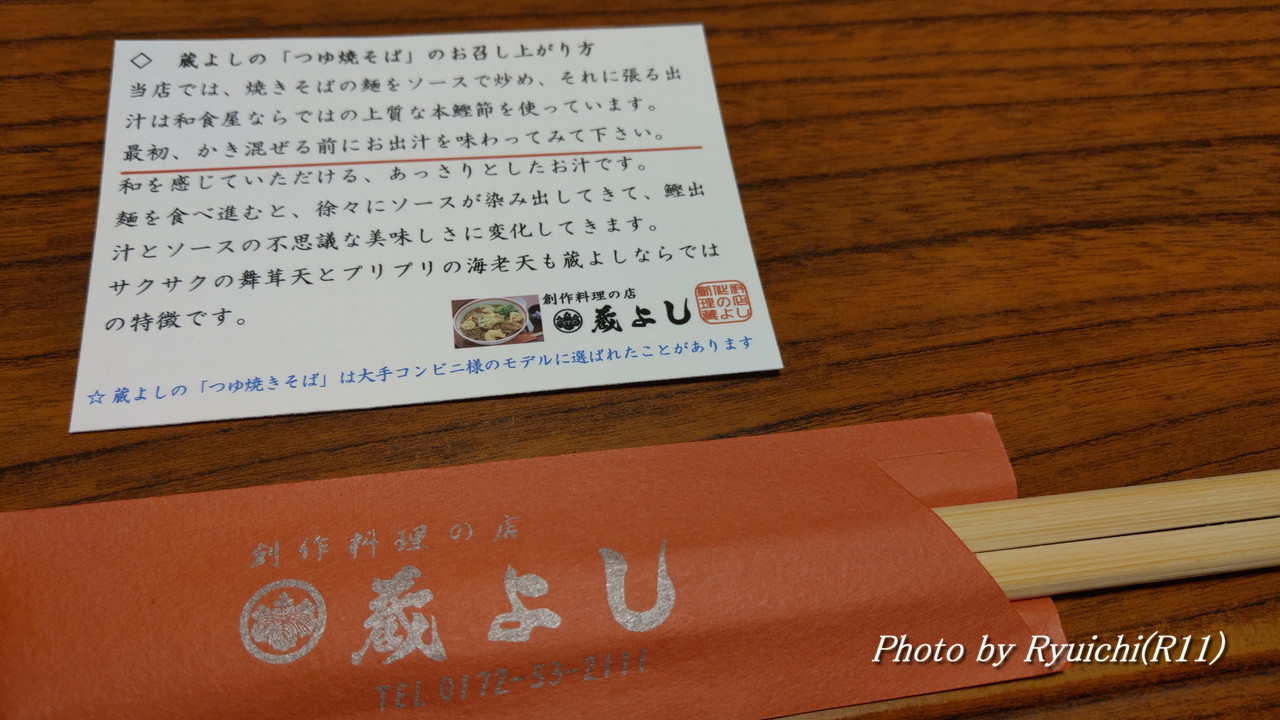 ◇ 蔵よしの「つゆ焼そば」のお召し上がり方
当店では、焼きそばの麺をソースで炒め、それに張る出
汁は和食屋ならではの上質な本鰹節を使っています。
最初、かき混ぜる前にお出汁を味わってみて下さい。
和を感じていただける、あっさりとしたお汁です。
麺を食べ進むと、徐々にソースが染み出してきて、鰹出
汁とソースの不思議な美味しさに変化してきます。
サクサクの舞茸天とプリプリの海老天も蔵よしならでは
の特徴です。
創作料理の店
蔵よし
☆ 蔵よしの「つゆ焼きそば」は大手コンビニ様のモデルに選ばれたことがあります
創作料理の店
蔵よし
TEL 0172-53-2111
Photo by Ryuichi(R11)